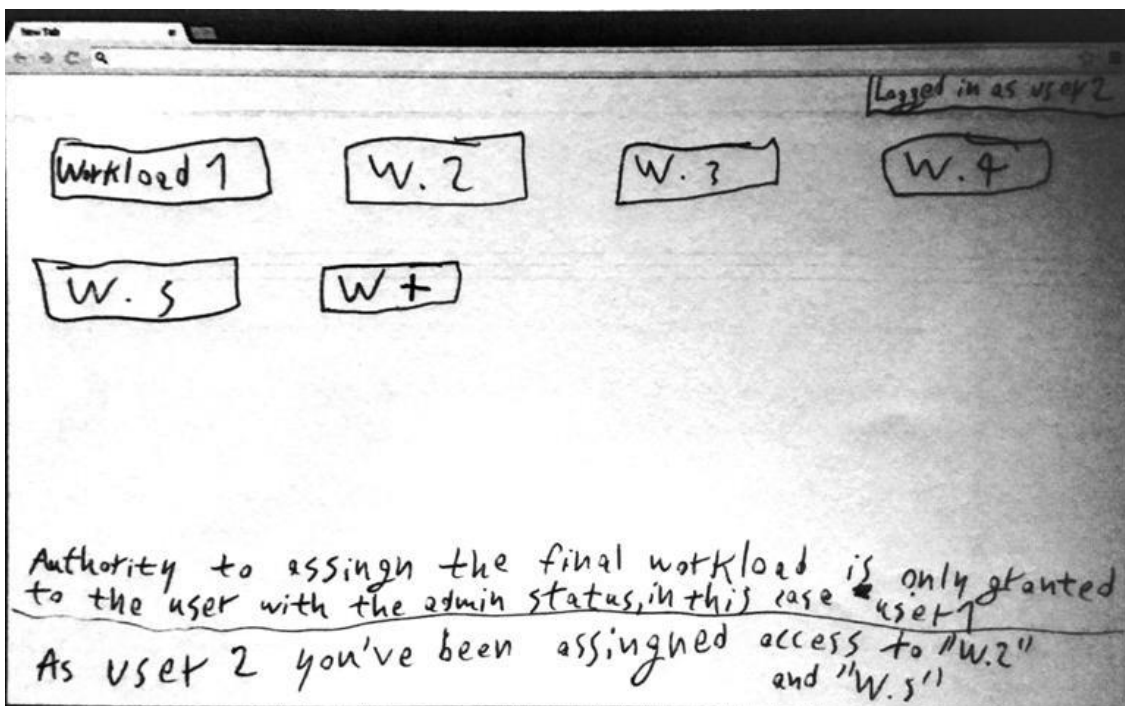 New Tab
Logged in as user 2
Workload 1
W. 2
W. 3
W. 4
W. 5
W +
Authority to assingn the final workload is only granted
to the user with the admin status, in this case user 1
As user 2 you've been assingned access to "W.2"
and "W.5"